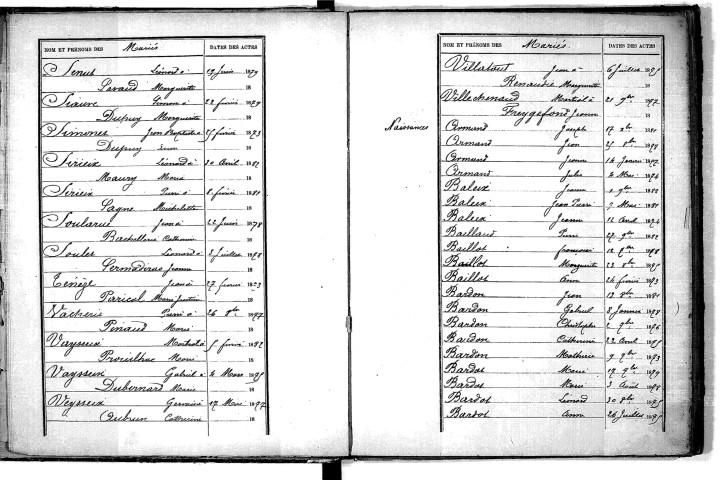 NOM ET PRÉNOMS DES Mariés DATES DES ACTES
Senut Léonard à 19 Juin 1879
Pavaud Marguerite 18
Siauve Simon à 22 février 1879
Dupuy Marguerite 18
Simonet Jean Baptiste à 25 février 1873
Dupuy 18
Sirieix Léonard à 30 Avril 1881
Maury Marie 18
Sirieix Pierre à 8 février 1881
Sagne Michelette 18
Soularue Jean à 22 Juin 1878
Bachellerie Catherine 18
Soulet Léonard à 2 Juillet 1878
Sermadiras Jeanne 18
Teinège Jean à 27 février 1883
Parical Marie 18
Vacherie Pierre à 26 8bre 1877
Pinaud Marie 18
Vaysseix Martial à 5 février 1882
Prouilhac Marie 18
Vaysseix Gabriel à 2 Mars 1875
Dubernard Marie 18
Veysseix Germain 17 Mai 1877
Aubrun Catherine 18
NOM ET PRÉNOMS DES Mariés DATES DES ACTES
Villatout Jean à 6 Juillet 1875
Renaudie Marguerite 18
Villechenaud Martial à 21 9bre 1872
Freygefond Jeanne 18
Naissances
Armand Joseph 17 1881
Armand Jean 25 8bre 1879
Armand Jeanne 14 Janvier 1877
Armand Jules 2 Mai 1874
Baleix Jeanne 1 9bre 1878
Baleix Jean Pierre 7 Mai 1881
Baleix Jeanne 12 Avril 1874
Baillaud Pierre 27 9bre 1882
Baillot 18
Baillot Marguerite 23 8bre 1875
Baillot Anna 24 février 1873
Bardon Jean 12 8bre 1881
Bardon Gabriel 8 Janvier 1878
Bardon Christophe 2 9bre 1876
Bardon Catherine 22 Avril 1875
Bardon Mathurin 9 9bre 1873
Bardot Marie 17 9bre 1879
Bardot Marie 3 Avril 1878
Bardot Léonard 30 8bre 1875
Bardot Anna 26 Juillet 1875